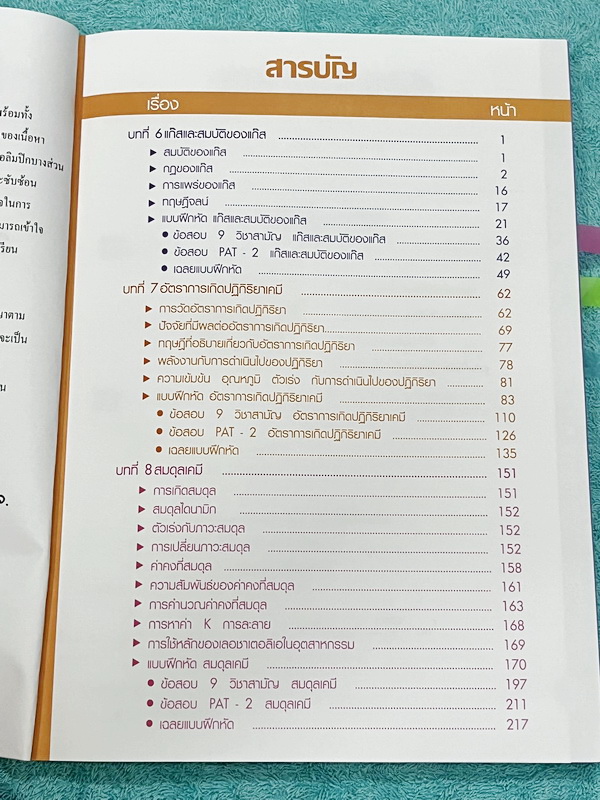 ร้อมทั้ง
ของเนื้อหา
อลิมปิกบางส่วน
ะซับซ้อน
จในการ
มารถเข้าใจ
เรียน
มาตาม
จะเป็น
น
จ.
สารบัญ
เรื่อง หน้า
บทที่ 6 แก๊สและสมบัติของแก๊ส 1
▶ สมบัติของแก๊ส 1
▶ กฎของแก๊ส 2
▶ การแพร่ของแก๊ส 16
▶ ทฤษฎีจลน์ 17
▶ แบบฝึกหัด แก๊สและสมบัติของแก๊ส 21
● ข้อสอบ 9 วิชาสามัญ แก๊สและสมบัติของแก๊ส 36
● ข้อสอบ PAT - 2 แก๊สและสมบัติของแก๊ส 42
● เฉลยแบบฝึกหัด 49
บทที่ 7 อัตราการเกิดปฏิกิริยาเคมี 62
▶ การวัดอัตราการเกิดปฏิกิริยา 62
▶ ปัจจัยที่มีผลต่ออัตราการเกิดปฏิกิริยา 69
▶ ทฤษฎีที่อธิบายเกี่ยวกับอัตราการเกิดปฏิกิริยา 77
▶ พลังงานกับการดำเนินไปของปฏิกิริยา 78
▶ ความเข้มข้น อุณหภูมิ ตัวเร่ง กับการดำเนินไปของปฏิกิริยา 81
▶ แบบฝึกหัด อัตราการเกิดปฏิกิริยาเคมี 83
● ข้อสอบ 9 วิชาสามัญ อัตราการเกิดปฏิกิริยาเคมี 110
● ข้อสอบ PAT - 2 อัตราการเกิดปฏิกิริยาเคมี 126
● เฉลยแบบฝึกหัด 135
บทที่ 8 สมดุลเคมี 151
▶ การเกิดสมดุล 151
▶ สมดุลไดนามิก 152
▶ ตัวเร่งกับภาวะสมดุล 152
▶ การเปลี่ยนภาวะสมดุล 152
▶ ค่าคงที่สมดุล 158
▶ ความสัมพันธ์ของค่าคงที่สมดุล 161
▶ การคำนวณค่าคงที่สมดุล 163
▶ การหาค่า K การละลาย 168
▶ การใช้หลักของเลอชาเตอลิเอในอุตสาหกรรม 169
▶ แบบฝึกหัด สมดุลเคมี 170
● ข้อสอบ 9 วิชาสามัญ สมดุลเคมี 197
● ข้อสอบ PAT - 2 สมดุลเคมี 211
● เฉลยแบบฝึกหัด 217